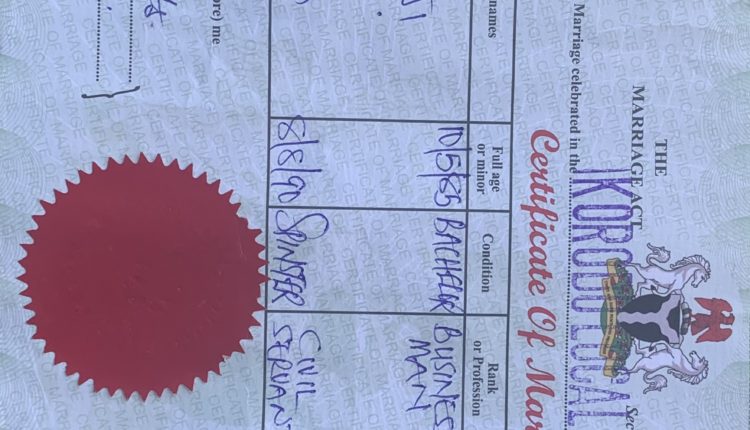 THE
MARRIAGE ACT
Marriage celebrated in the IKORODU LOCAL
Certificate Of Mar
names
Full age
or minor
Condition
Rank
or Profession
10/5/85 BACHELOR BUSINES
MAN
8/8/90 SPINSTER CIVIL
SERVAN
ore) me